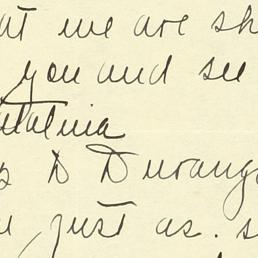 at we are sh
you and see
atalina
D Durango
just as. s